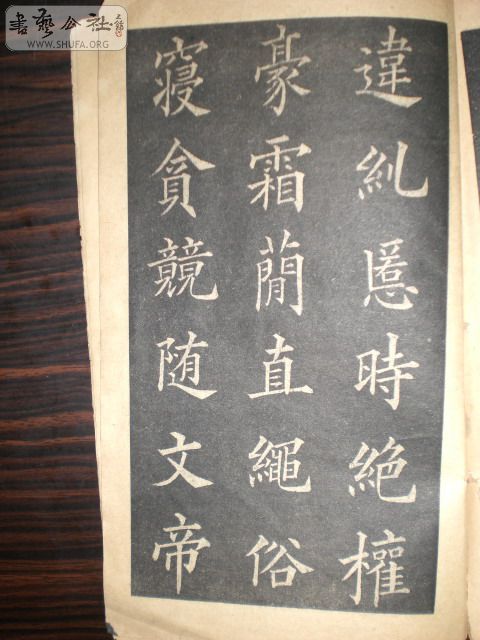 違糺慝時絶權
豪霜簡直繩俗
寢貪競随文帝
書藝公社
WWW.SHUFA.ORG